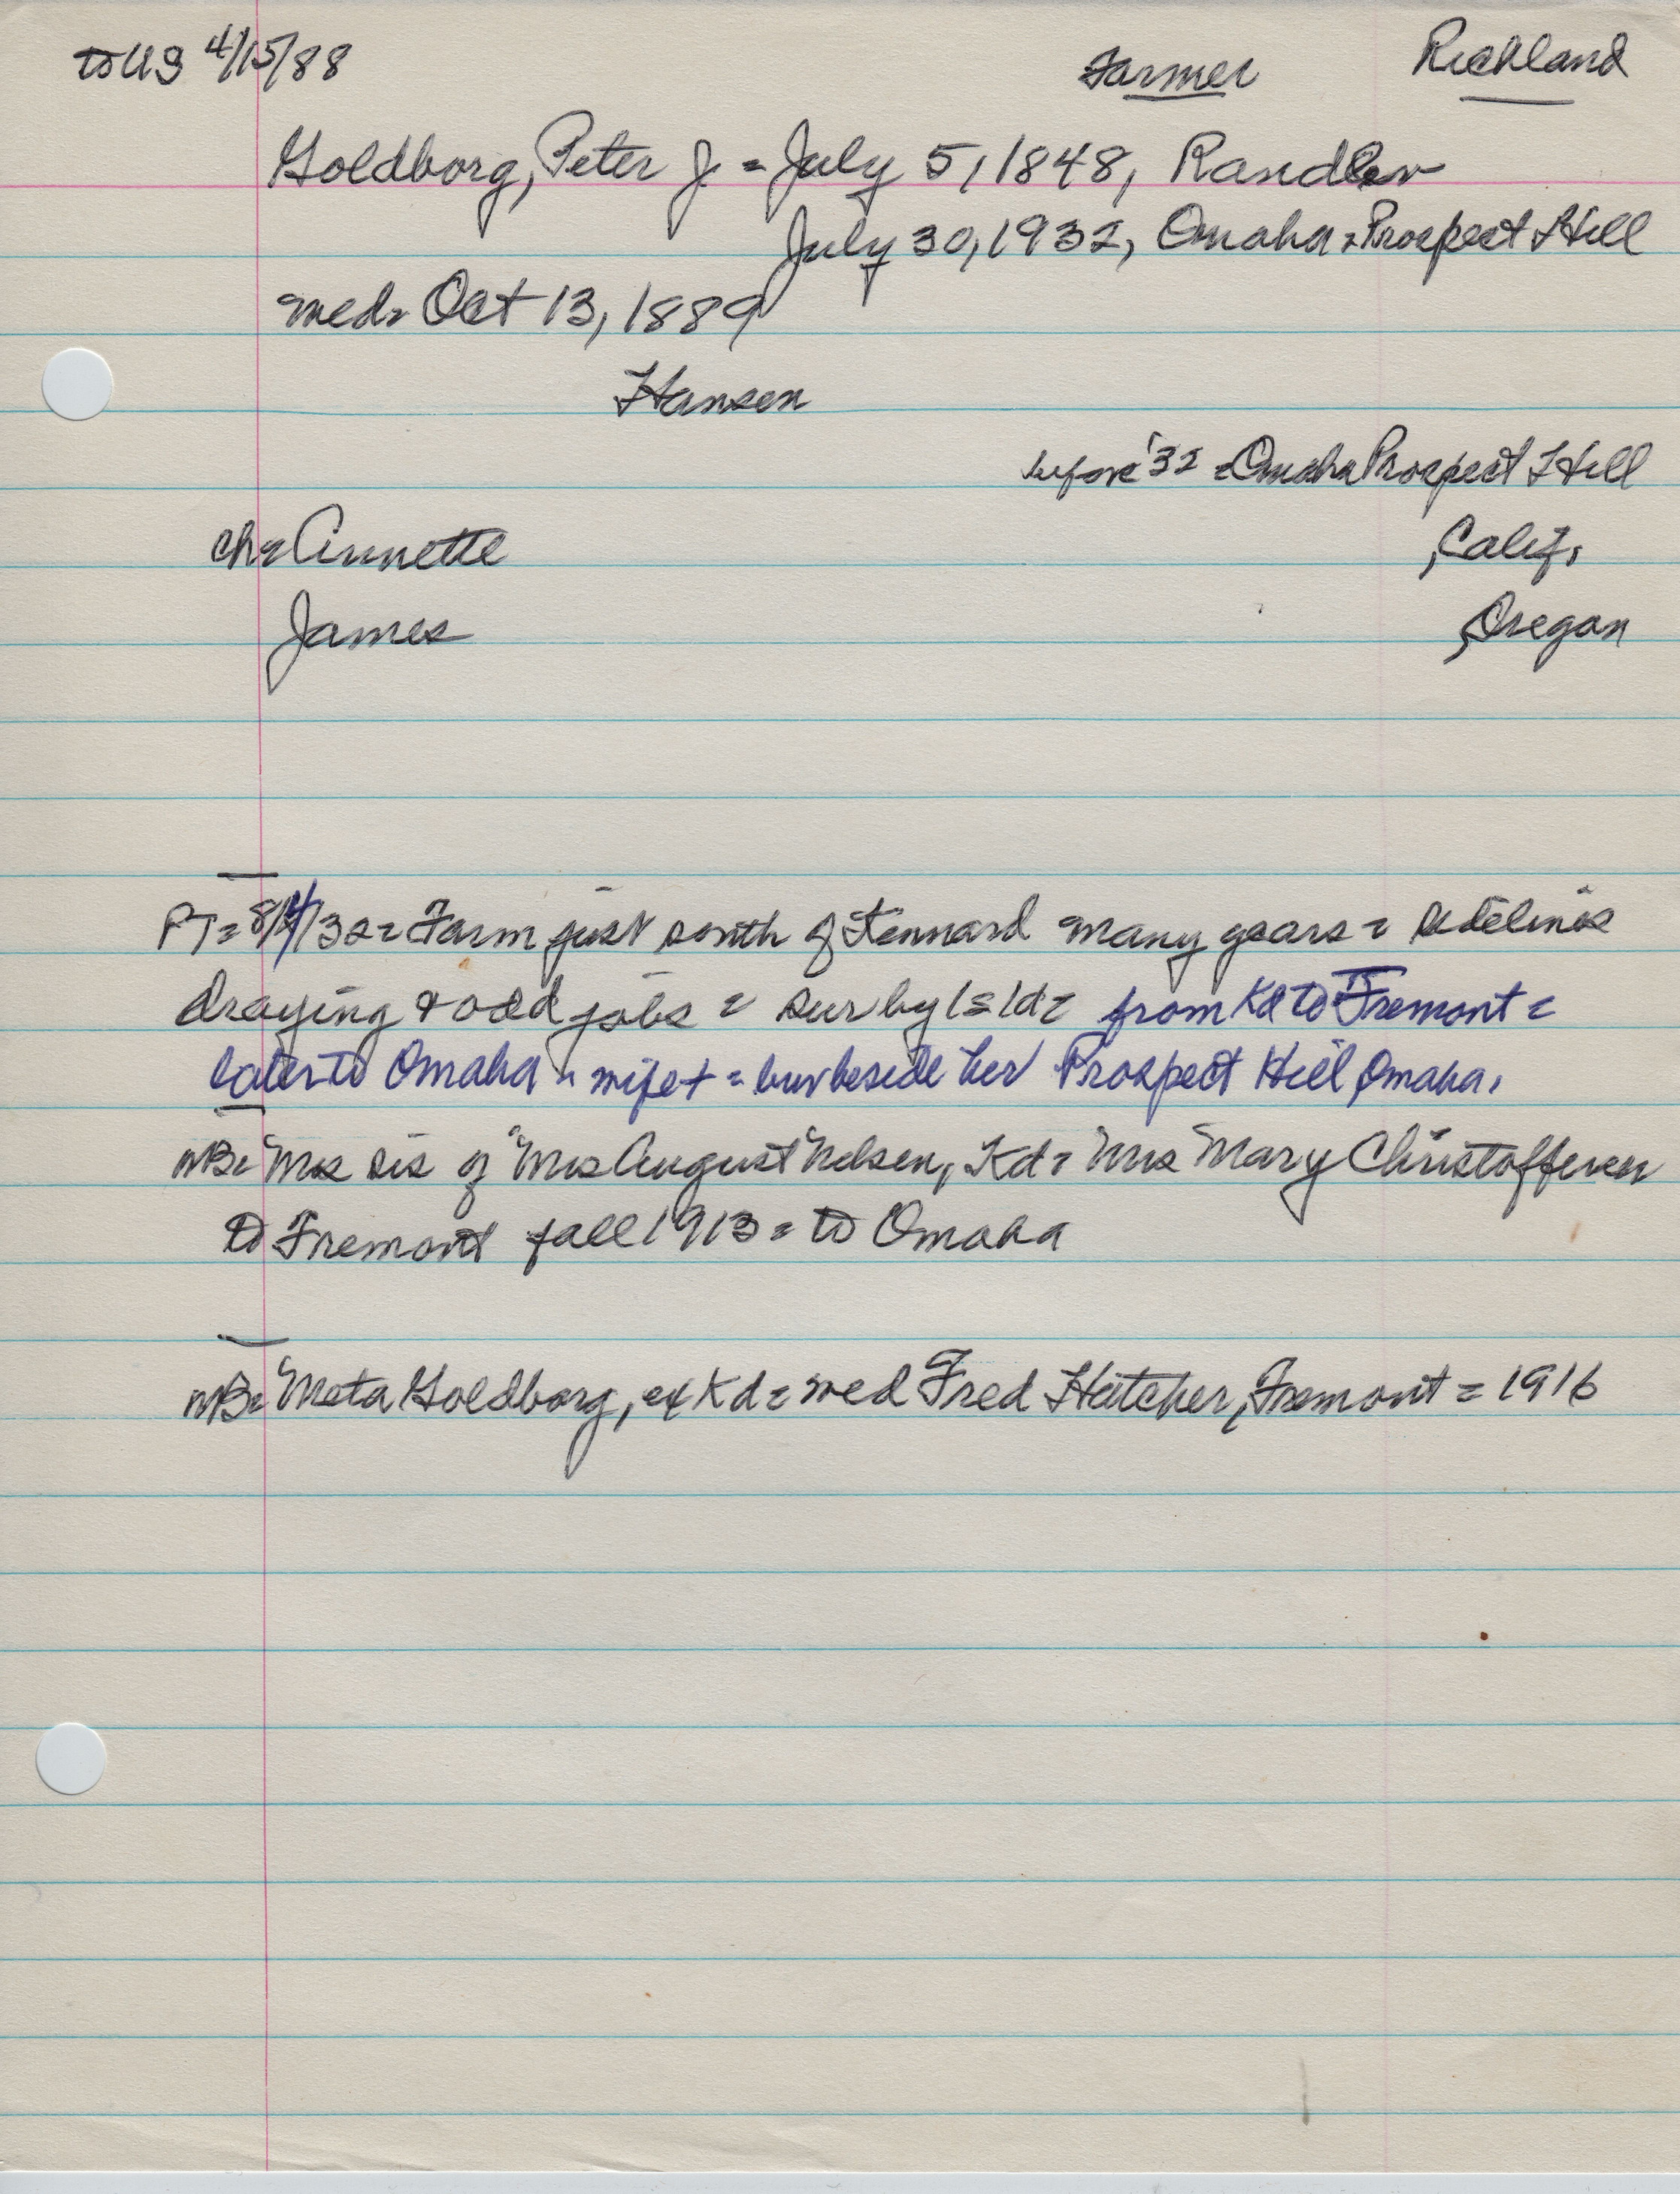 to US 4/15/88 Farmer Richland
Goldborg, Peter J. = July 5, 1848, Randers
July 30, 1932, Omaha = Prospect Hill
wed = Oct 13, 1889
Hansen
before '32 = Omaha Prospect Hill
ch = Annette , Calif.
James , Oregon
PT = 8/4/32 = Farm just south of Kennard many years =
draying & odd jobs = sur by 1s 1d = from Kd to Fremont =
later to Omaha = wife + = bur beside her Prospect Hill, Omaha.
NB = Mrs sis of Mrs August Nelsen, Kd = Mrs Mary Christoffersen
to Fremont fall 1913 = to Omaha
NB = Meta Goldborg, ex Kd = wed Fred Hatcher, Fremont = 1916